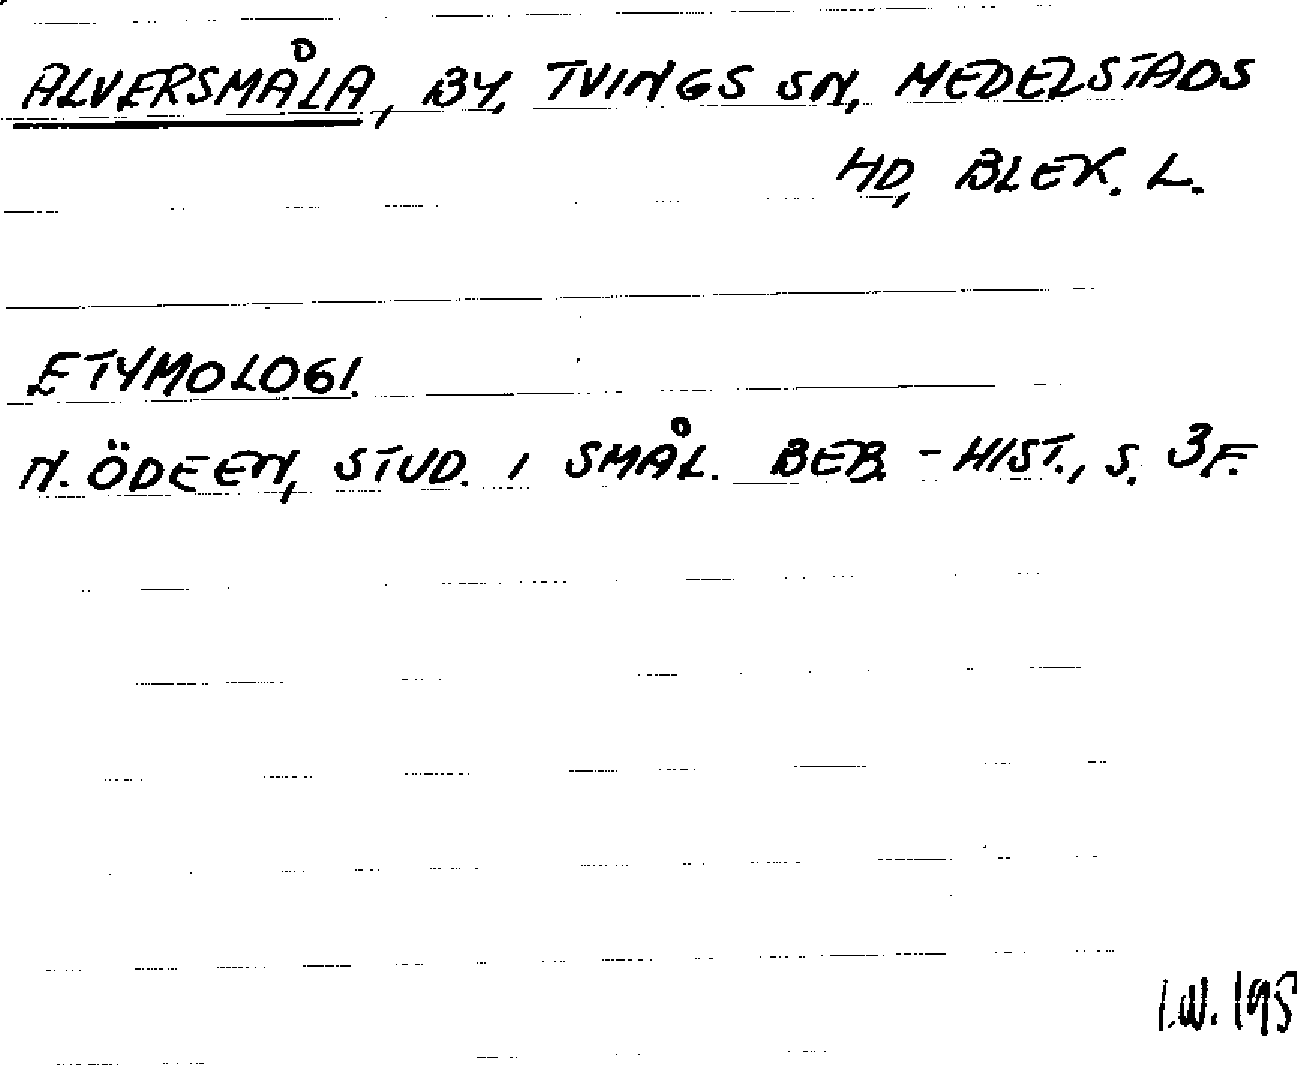 ALVERSMÅLA, BY, TVINGS SN, MEDELSTADS
HD, BLEK. L.
ETYMOLOGI.
N. ÖDEEN, STUD. I SMÅL. BEB.-HIST., S. 3F.
I.W. 195